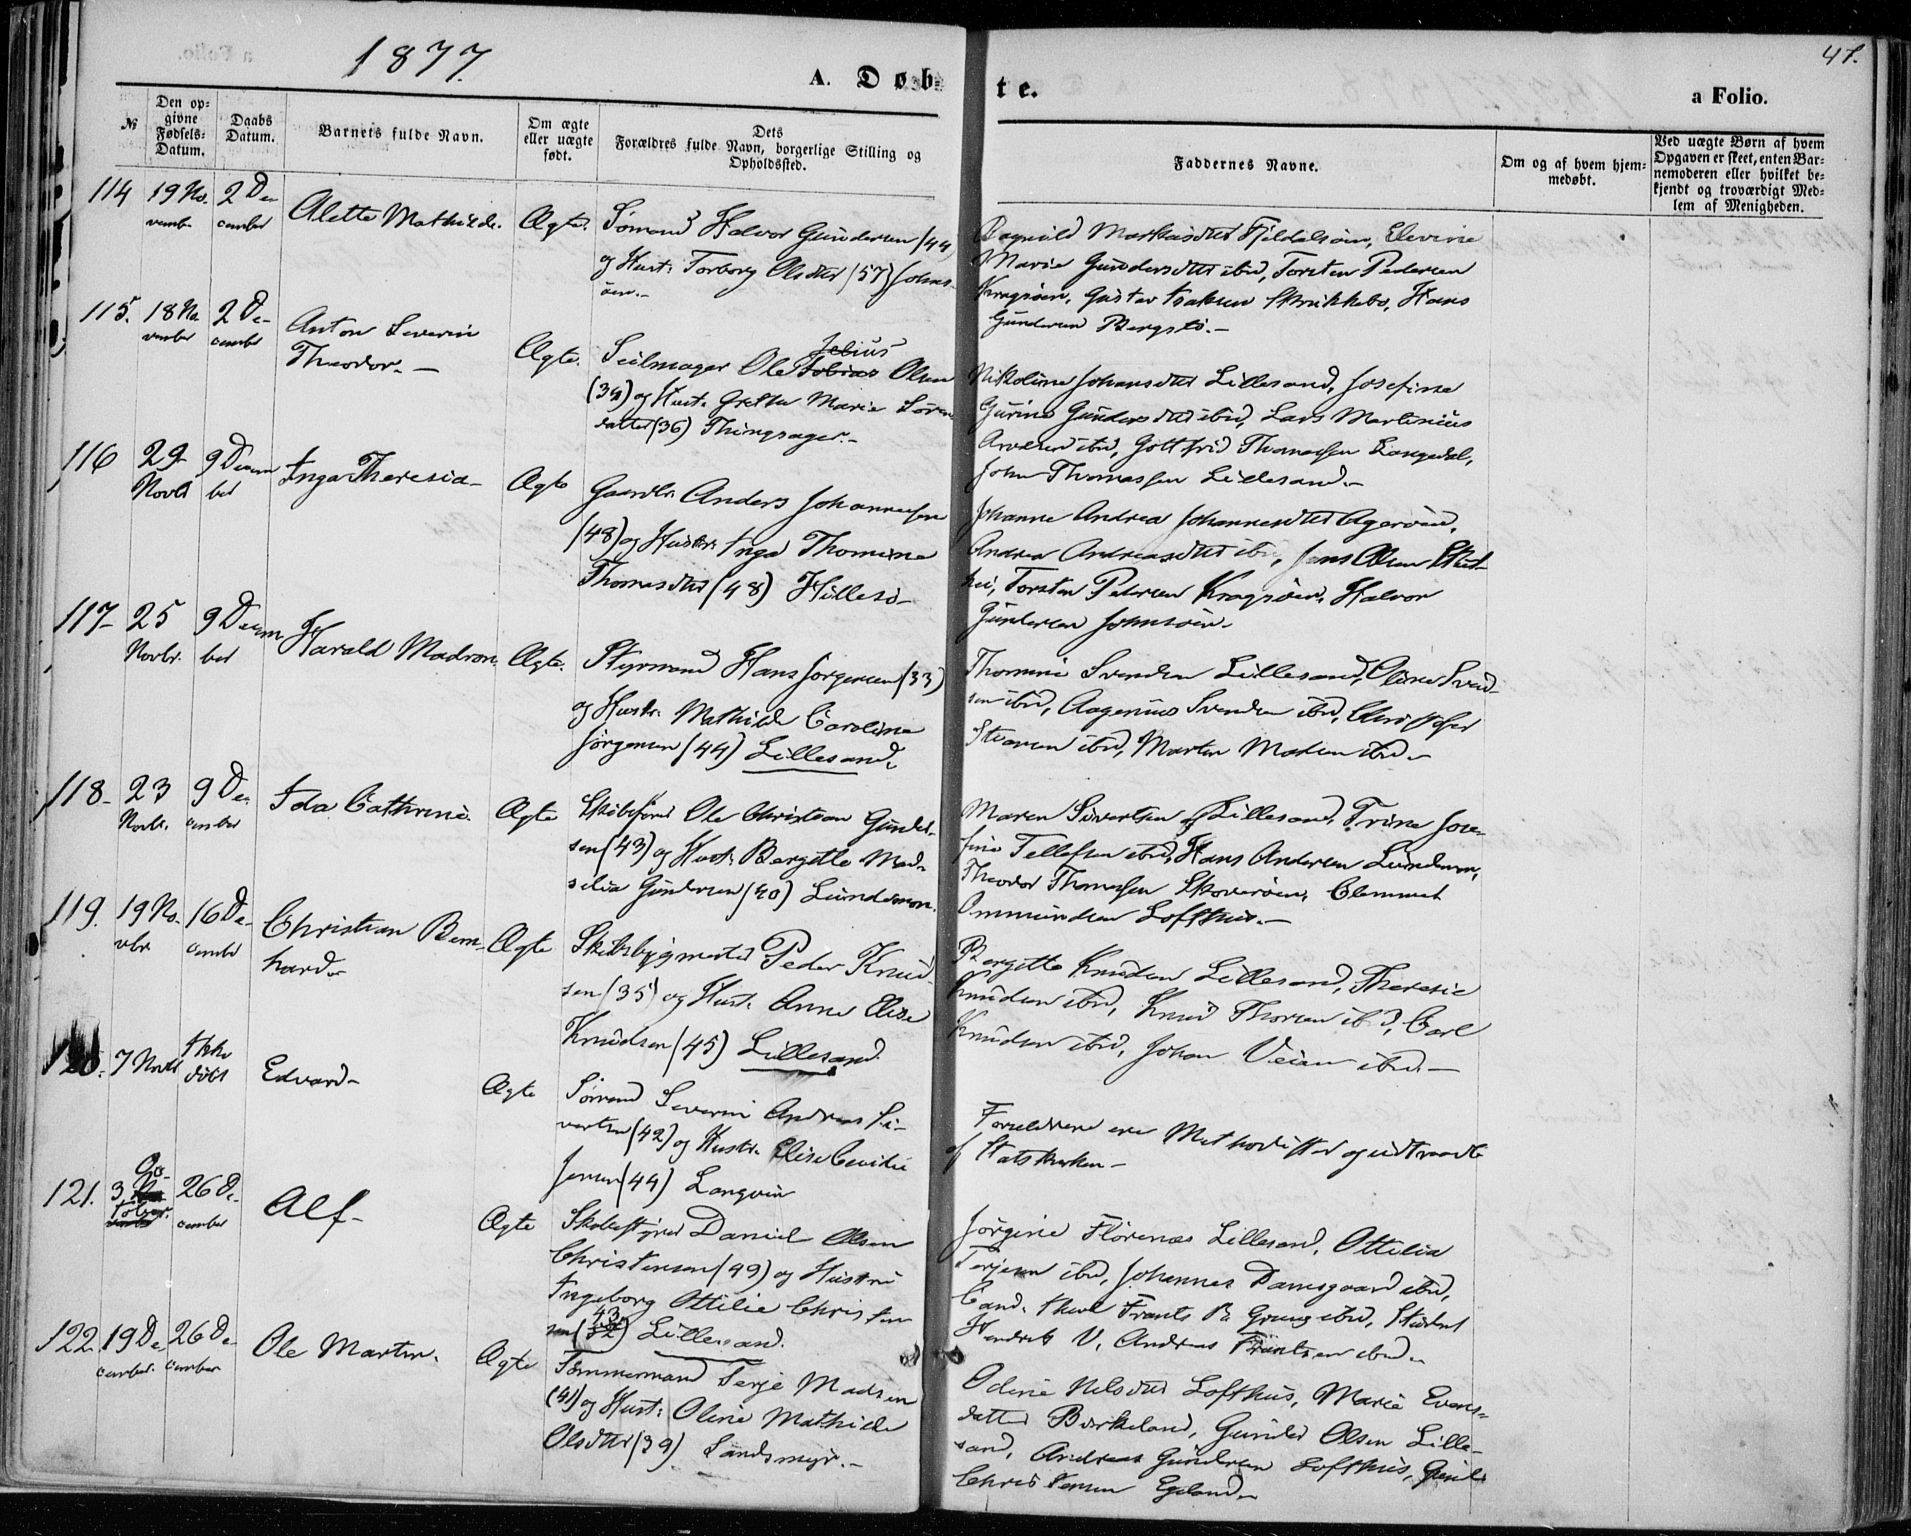 1877.
47.
A. Døb
te.
a Folio.
№
Den opgivne Fødsels-Datum.
Daabs Datum.
Barnets fulde Navn.
Om ægte eller uægte født.
Dets Forældres fulde Navn, borgerlige Stilling og Opholdssted.
Faddernes Navne.
Om og af hvem hjemmedøbt.
Ved uægte Børn af hvem Opgaven er skeet, enten Barnemoderen eller hvilket bekjendt og troværdigt Medlem af Menigheden.
114 19 No- 2 De-
vember cember
Alette Mathilde.
Ægte.
Sømand Halvor Gundersen (44)
og Hust: Torborg Olsdtr (57) Johns-
øen.-
Ragnild Markusdtr Fjeldalsøen, Elevine
Marie Gundersdtr ibid, Torsten Pedersen
Kragsøen, Gustav Isaksen Skrukkebo, Hans
Gundersen Bergstø.-
115. 18 No- 2 De-
vember cember
Anton Severin
Theodor.-
Ægte.
Julius
Seilmager Ole Tobias Olsen
(34) og Hust: Grethe Marie Søren-
datter (36) Thingsager.-
Nikoline Johansdtr Lillesand, Josefine
Gurine Gundersdtr ibid, Lars Martinius
ibid, Gottfrid Thomassen Langedal,
John Thomassen Lillesand.-
116 29 9 Decem
Novbr ber
Inga Theresia-
Ægte
Gaardbr. Anders Johannessen
(48) og Hustr: Inga Thomine
Thomasdtr (48) Hillesø-
Johanne Andrea Johannesdtr Agerøen,
Andrea Andreasdtr ibid, Jens Olsen
Torsten Pedersen Kragsøen, Halvor
Gundersen Johnsøen.
117- 25 9 Decem
Novbr. ber
Harald Madron.
Ægte.
Styrmand Hans Jørgensen (33)
og Hustr: Mathilde Caroline
Jørgensen (44) Lillesand.
Thomine Svendsen Lillesand, Oline Svend-
sen ibid, Aagenius Svendsen ibid, Christopher
ibid, Martin Madsen ibid-
118- 23 9 De-
Novbr. cember
Ida Cathrine.
Ægte
Skibsfører Ole Christian Gunder-
sen (43) og Hust: Bergitte Mad-
silia Gundersen (40) Lundemon.
Maren Sivertsen Lillesand, Trine Jose-
fine Tellefsen ibid, Hans Andersen Lundemon,
Theodor Thomassen Skoverøen, Clemmet
Ommundsen Lofthus.-
119. 19 No- 16 De-
vbr. cember
Christian Bern-
hard-
Ægte
Skibsbygmester Peder Knud-
sen (35) og Hust: Anne Elise
Knudsen (45) Lillesand.
Bergitte Knudsen Lillesand, Theresie
Knudsen ibid, Knud Thorsen ibid, Carl
Knudsen ibid, Johan Veien ibid.-
120. 7 Novbr Ikke
døbt
Edvard-
Ægte
Sømand Severin Andreas Si-
vertsen (42) og Hustr. Elise Cecilie
Jensen (44) Langvin
Forældrene ere Methodister og udtraadte
af Statskirken-
121. 3 Oc- 26 De-
tober. cember
Alf-
Ægte
Skibsstyrer Daniel Olsen
Christensen (49) og Hustru
Ingeborg Ottilie Christen-
43
sen (32) Lillesand.
Jørgine Florenæs Lillesand, Ottilia
Terjesen ibid, Johannes Damsgaard ibid,
Cand. theol Frants B. Grung ibid, Student
Hendrik V. Andreas Frantzen ibid.
122. 19 De- 26 De-
cember. cember
Ole Martin.
Ægte
Tømmermand Terje Madsen
(41) og Hust: Oline Mathilde
Olsdtr (39) Sandsmyr.-
Odine Nelsdtr Lofthus, Marie Evens-
datter Birkeland, Gunder Olsen Lille-
sand, Andreas Gundersen Lofthus,
Christensen Egeland-